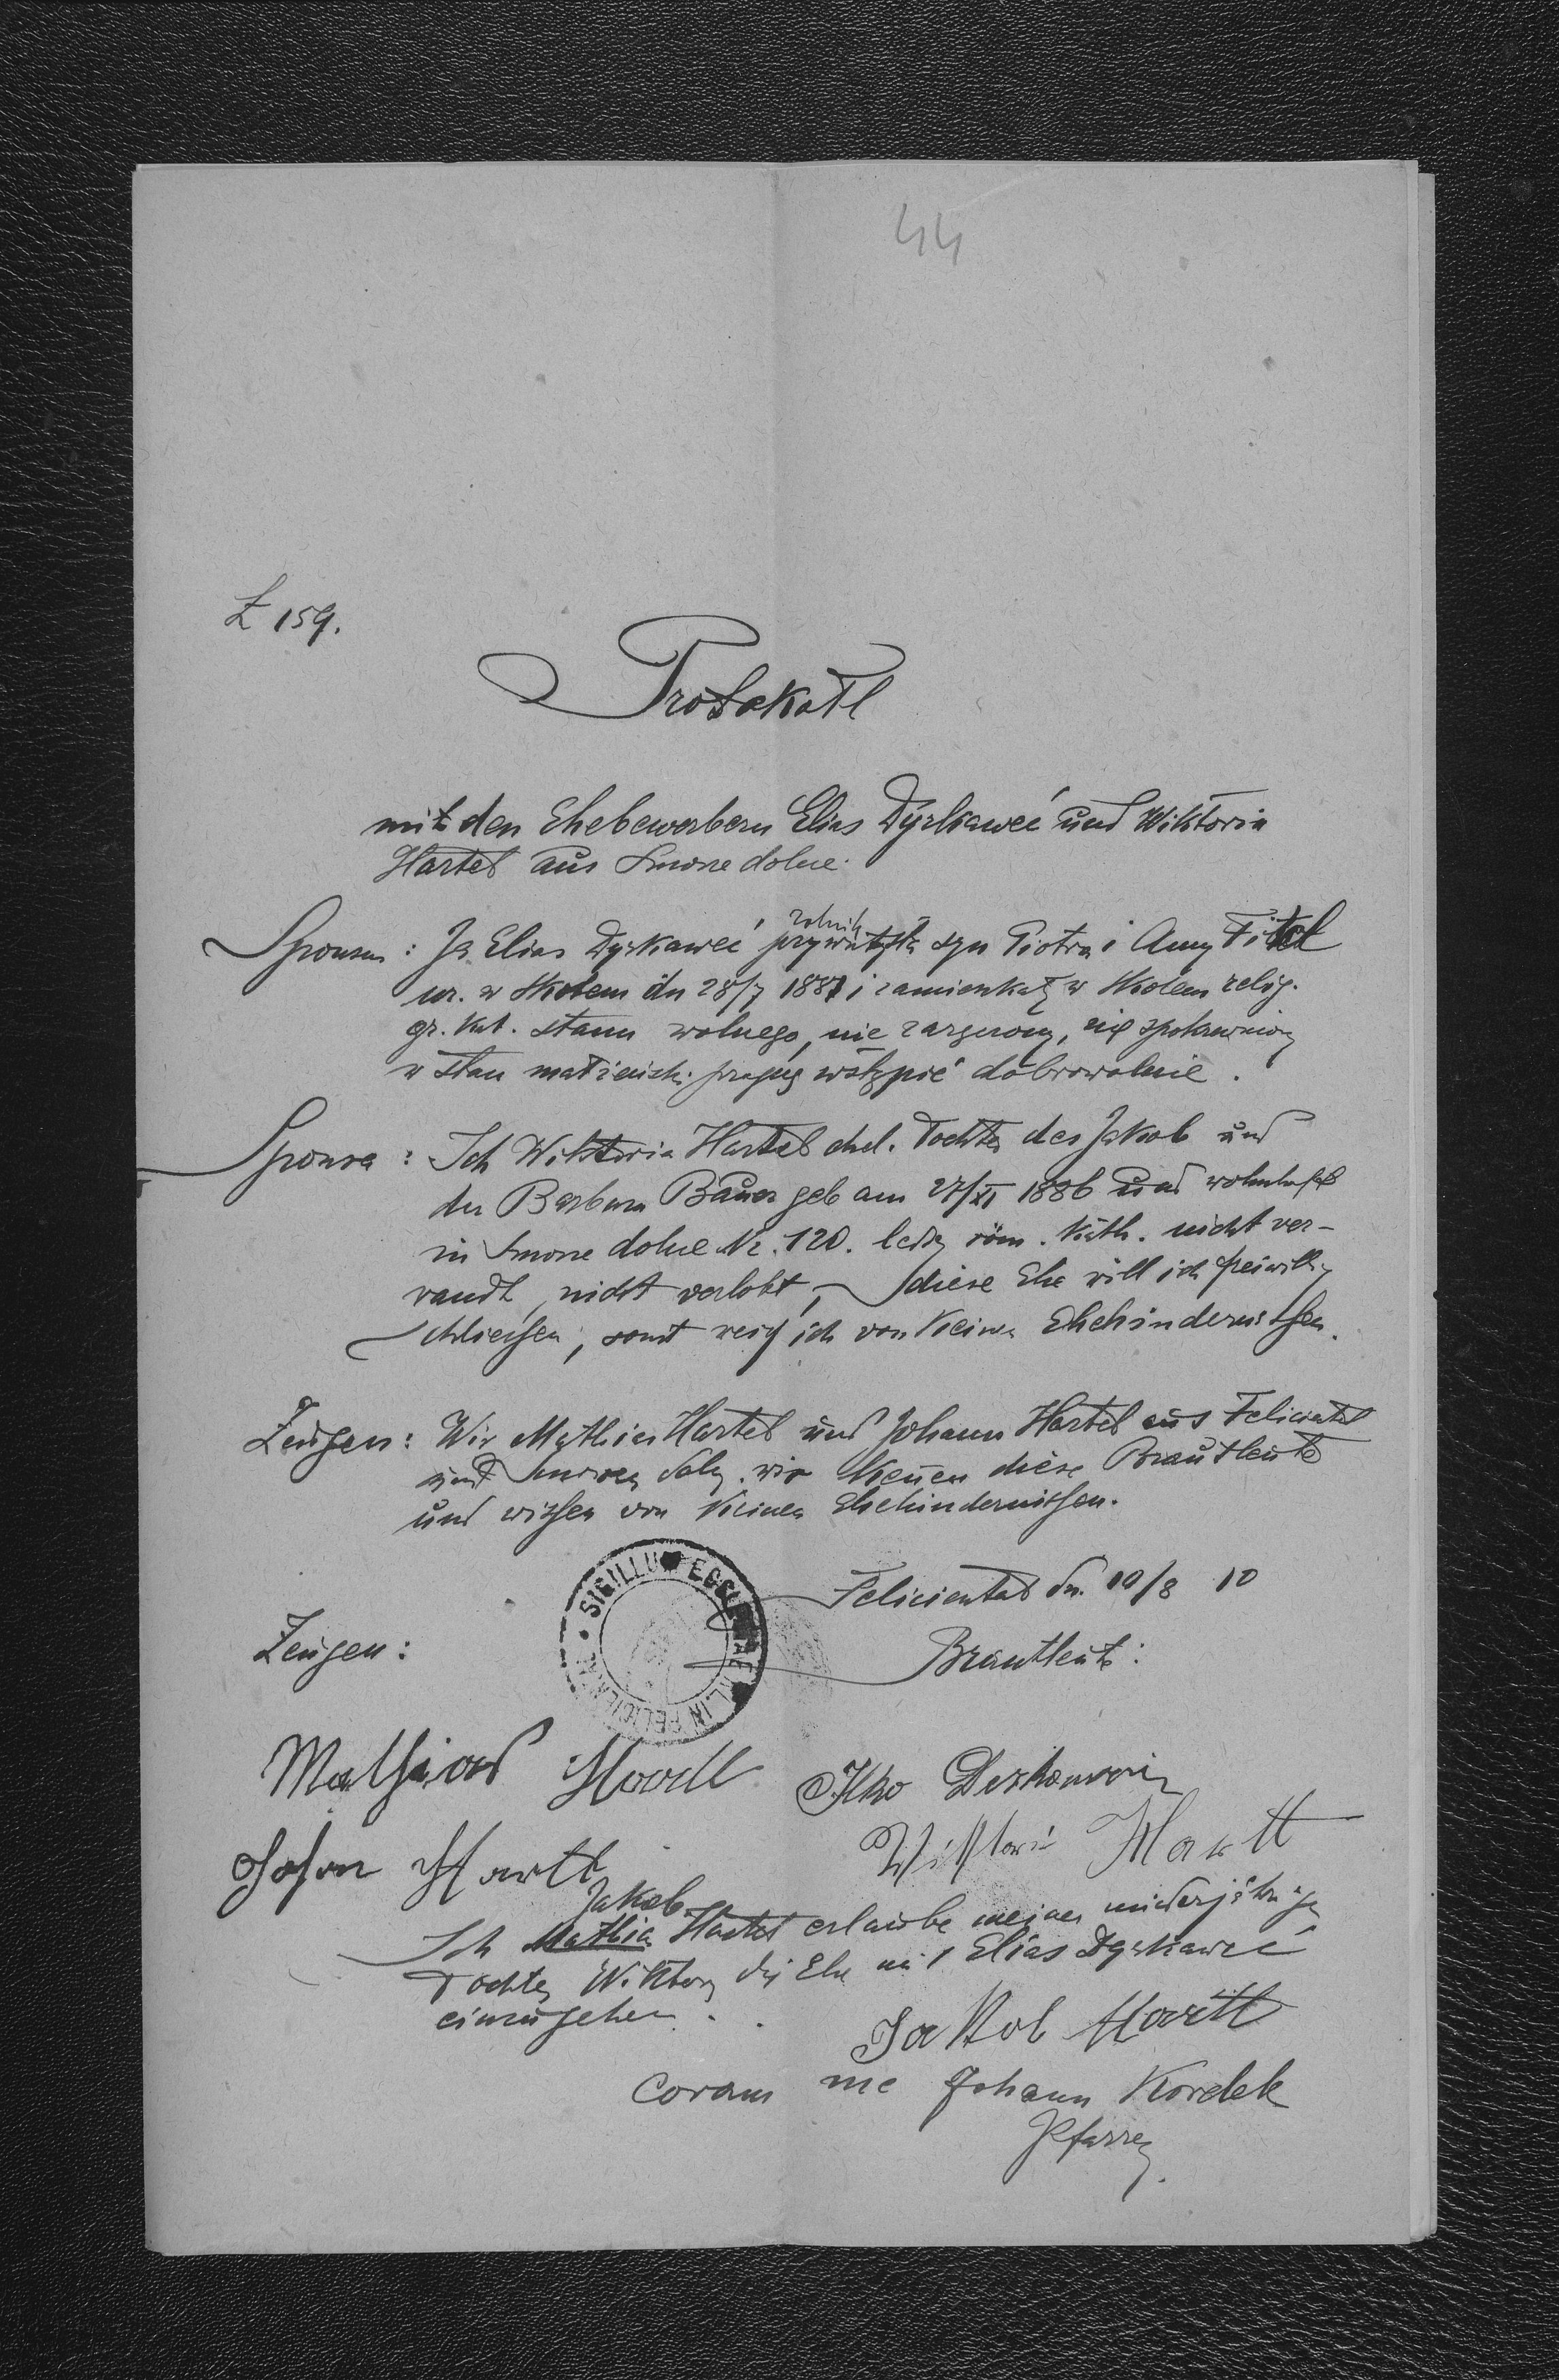 44
L 159.
Protokoll
mit den Ehebewerbern Elias Dyrkaweć und Wiktoria
Hartel aus Smorze dolne.
Sponsus: Ja Elias Dyrkaweć rolnik prywatysta syn Piotra i Anny Fitel
ur. w Skolem dn 28/7 1881 i zamieszkały w Skolem relig.
gr. kat. stanu wolnego, nie zaręczony, nie spokrewniony
w stan małżeński pragnę wstąpić dobrowolnie.
Sponsa: Ich Wiktoria Hartel ehel. Tochter des Jakob und
der Barbara Bauer geb am 27/XI 1886 und wohnhaft
in Smorze dolne Nr. 120. ledig röm. kath. nicht ver-
wandt, nicht verlobt, diese Ehe will ich freiwillig
schliessen, sonst weiß ich von keinen Ehehindernissen.
Zeugen: Wir Mathias Hartel und Johann Hartel aus Felicientál
und Smorze dolny. wir kennen diese Brautleute
und wissen von keinen Ehehindernissen.
Felicientál dn. 10/8 10
SIGILLUM ECCLESIAE IN FELICIENTAL
Zeugen:
Brautleute:
Mathias Hartl
Ilko
Johan Hartl
Wiktoria Hartl
Jakob
Ich Mathia Hartel erlaube meiner minderjährigen
Tochter Wiktoria die Ehe mit Elias Dyrkaweć
einzugehen.
Jakob Hartl
Coram me Johann Kordek
Pfarrer.